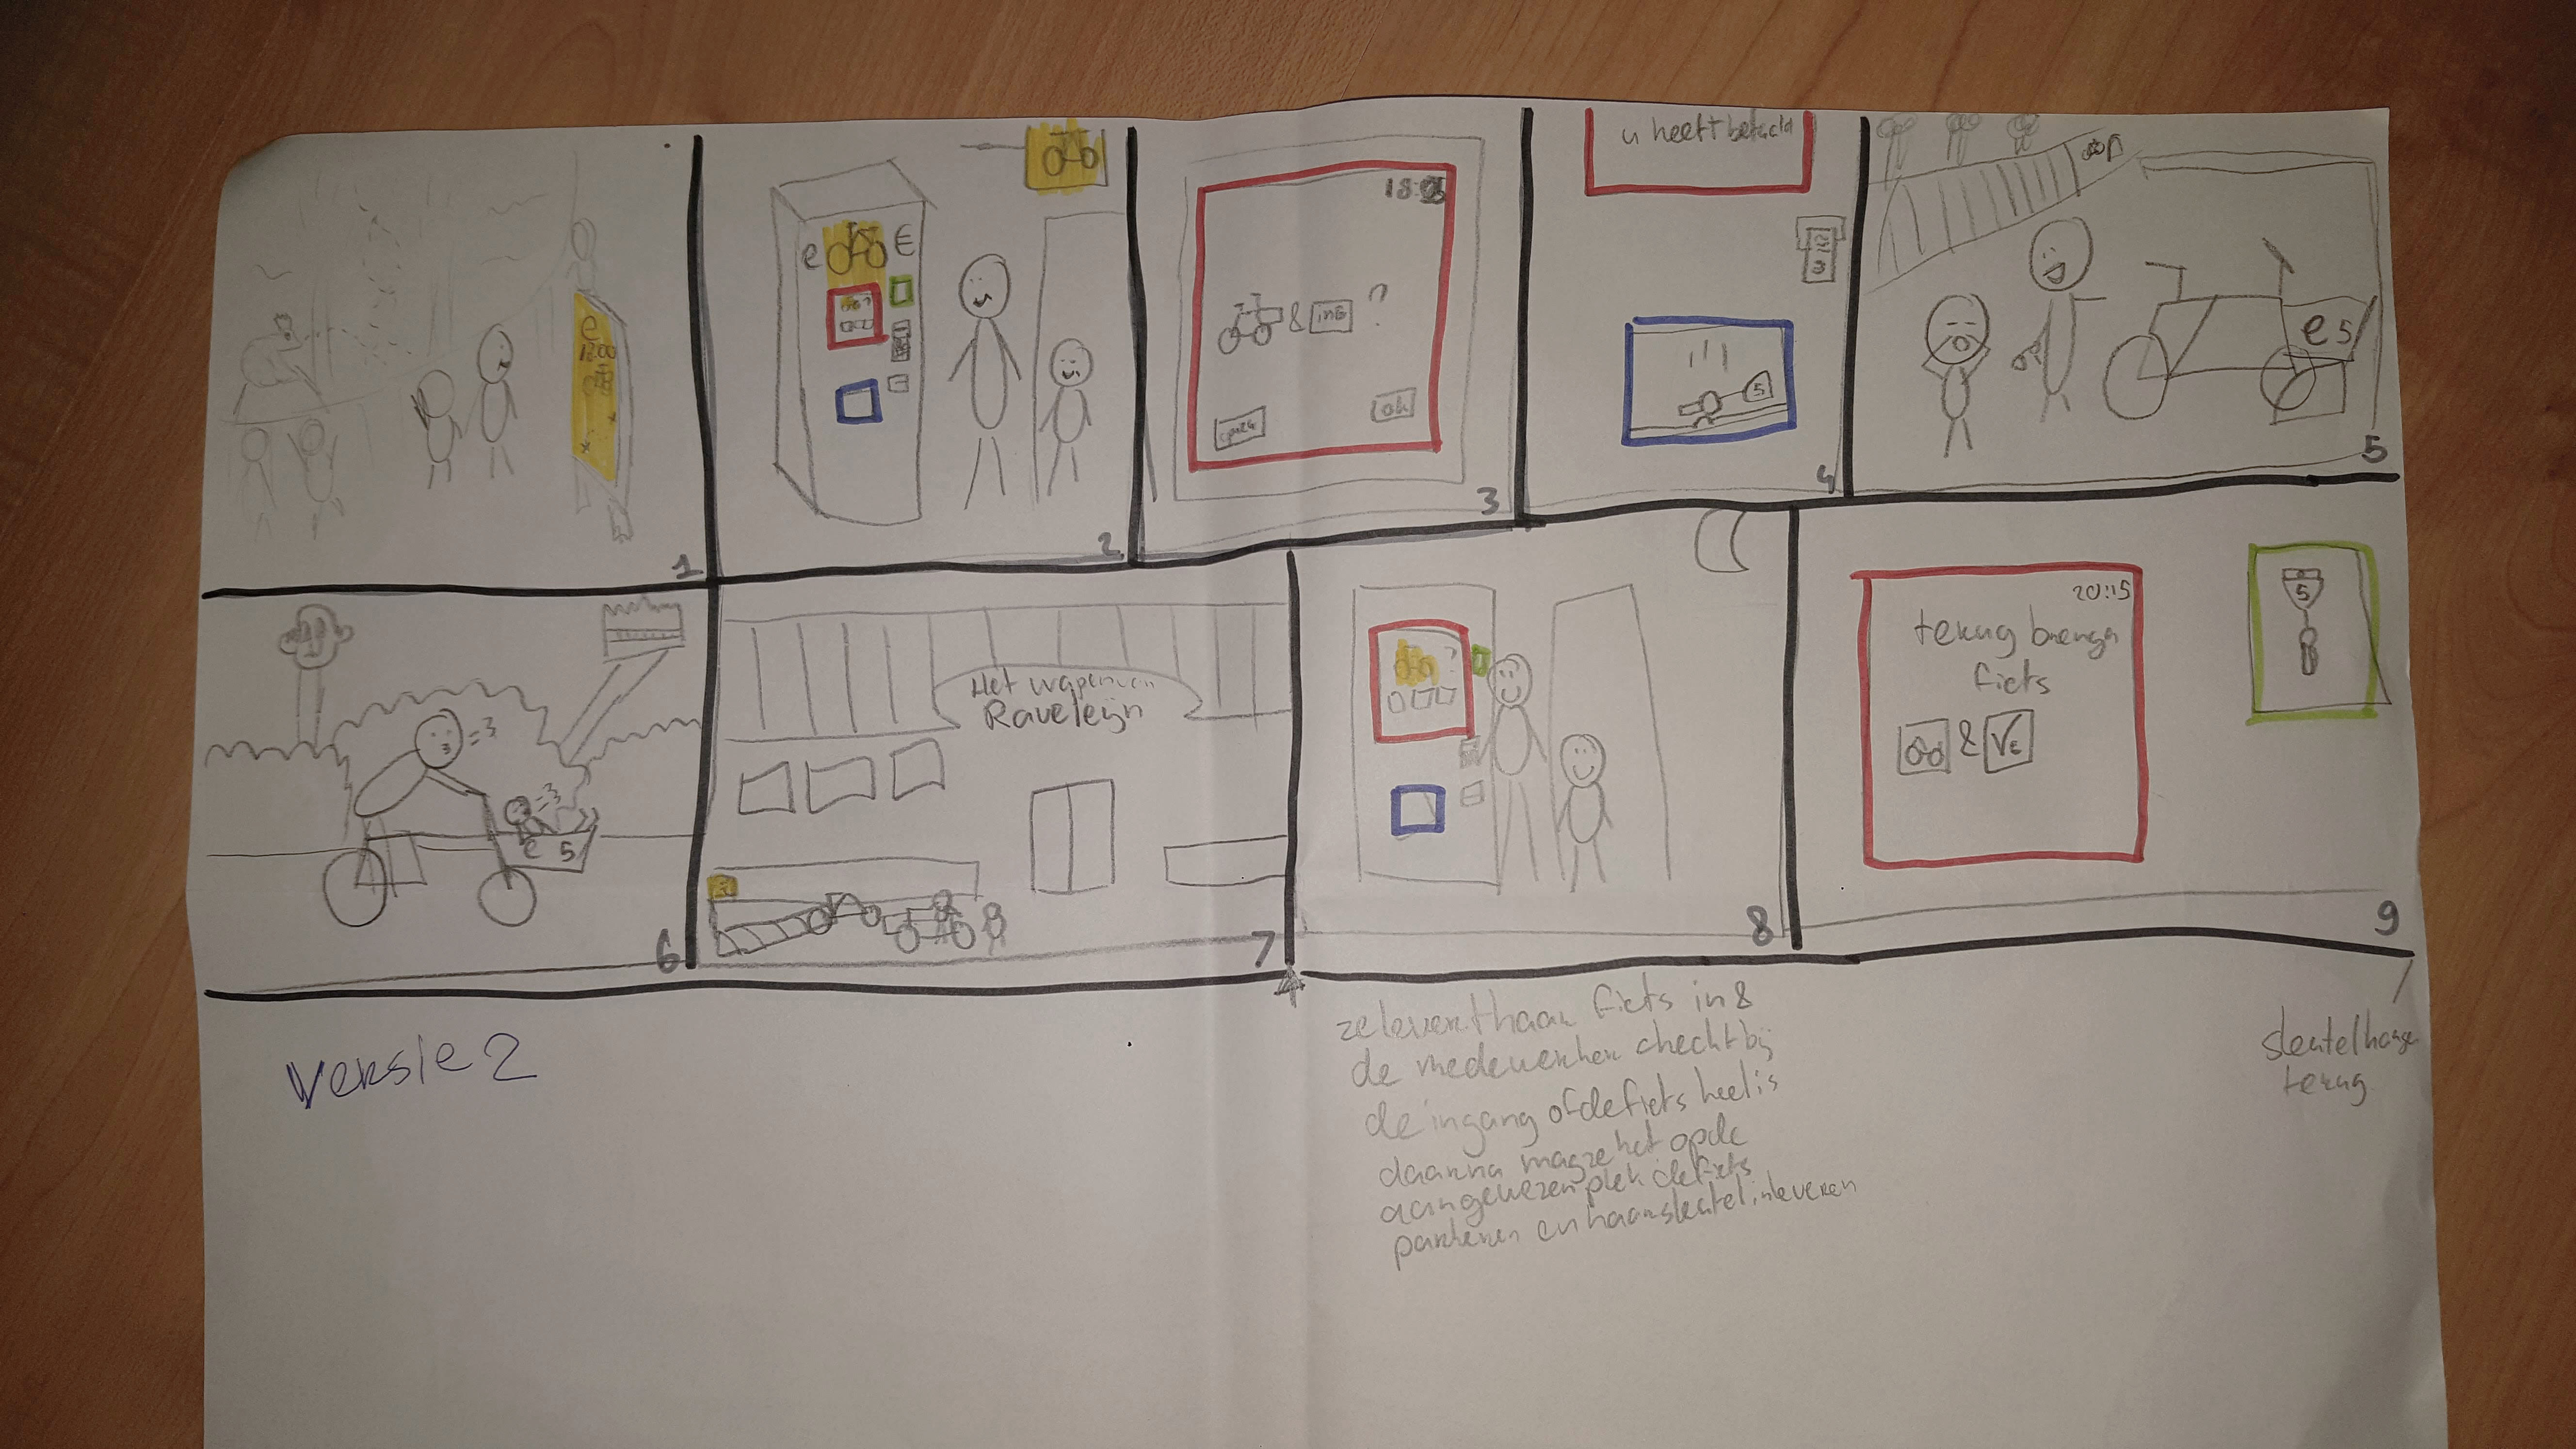 e
1
e €
2
18:
& ?
ok
3
u heeft betaald
5
4
e 5
5
e 5
6
Het wapen van
Raveleijn
7
8
20:15
terug brengen
fiets
&
5
9
versie 2
ze levert haar fiets in &
de medewerker checkt bij
de ingang of de fiets heel is
daarna mag ze het op de
aangewezen plek de fiets
parkeren en haar sleutel inleveren
sleutelhanger
terug